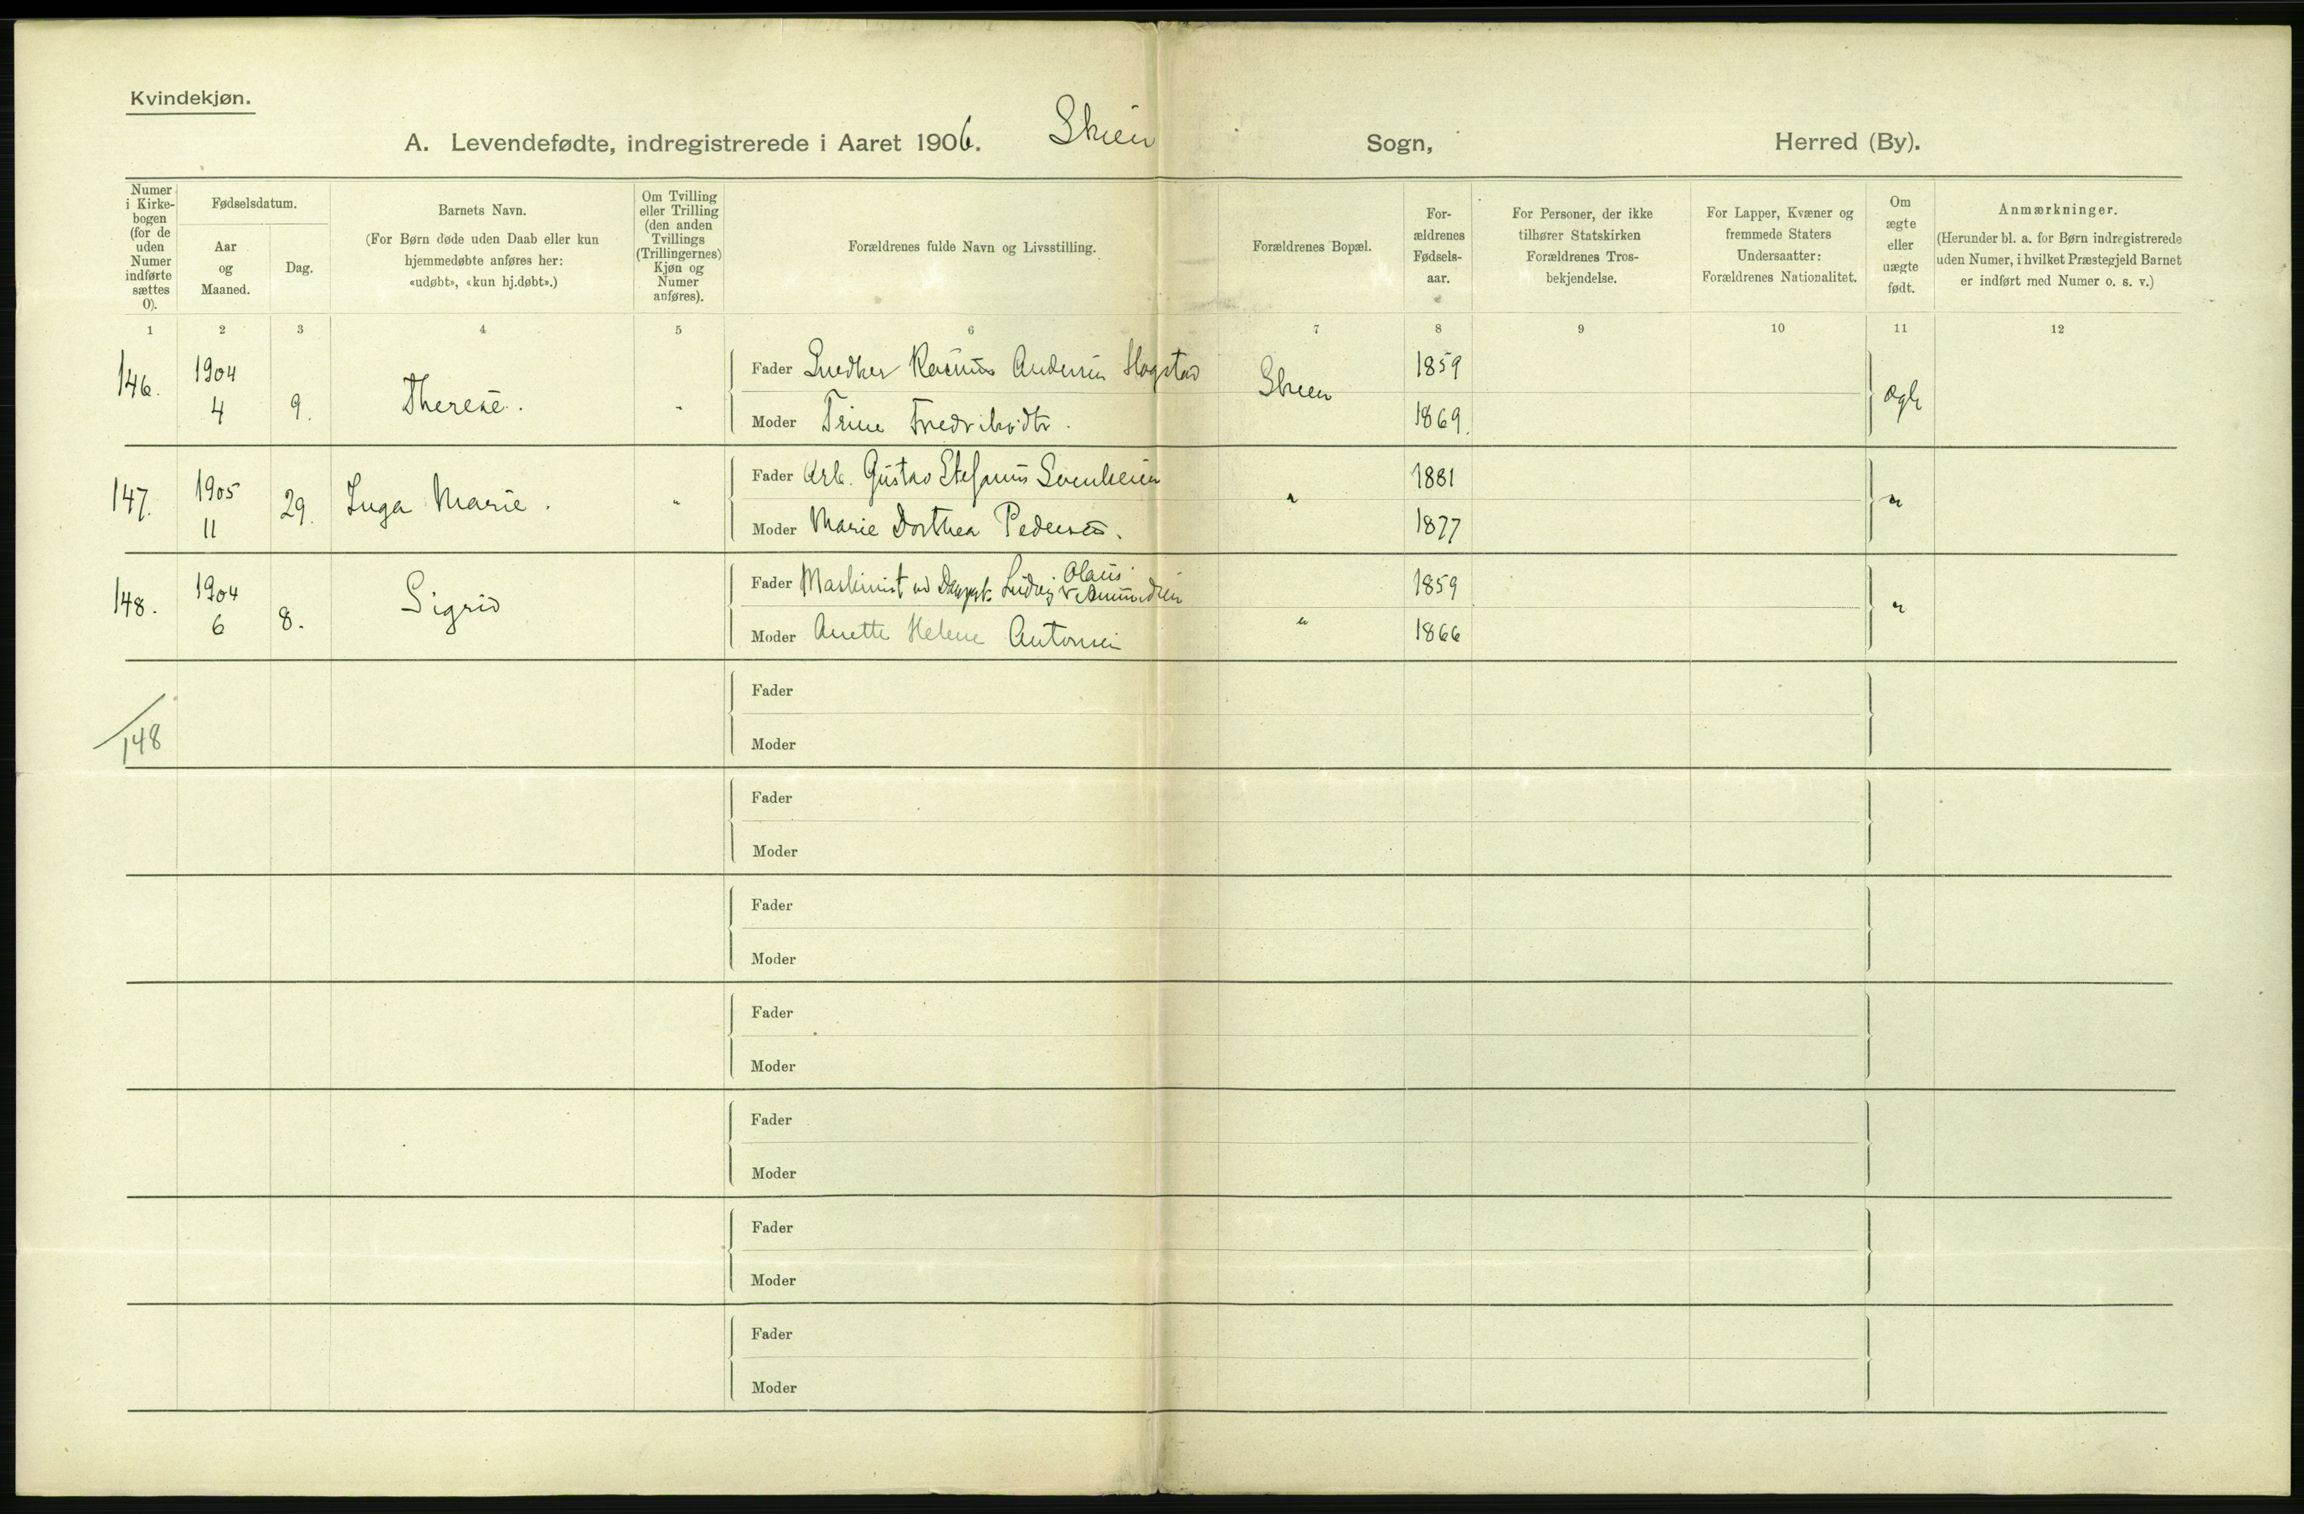 Kvindekjøn.
A. Levendefødte, indregistrerede i Aaret 1906. Skien Sogn, Herred (By).
Numer i Kirke-bogen (for de uden Numer indførte sættes 0).
Fødselsdatum.
Aar og Maaned.
Dag.
Barnets Navn.
(For Børn døde uden Daab eller kun hjemmedøbte anføres her: «udøbt», «kun hj.døbt».)
Om Tvilling eller Trilling (den anden Tvillings (Trillingernes) Kjøn og Numer anføres).
Forældrenes fulde Navn og Livsstilling.
Forældrenes Bopæl.
For-ældrenes Fødsels-aar.
For Personer, der ikke tilhører Statskirken Forældrenes Tros-bekjendelse.
For Lapper, Kvæner og fremmede Staters Undersaatter: Forældrenes Nationalitet.
Om ægte eller uægte født.
Anmærkninger.
(Herunder bl. a. for Børn indregistrerede uden Numer, i hvilket Præstegjeld Barnet er indført med Numer o. s. v.)
1 2 3 4 5 6 7 8 9 10 11 12
146. 1904 4 9. Therese. "
Fader Snedker Rasmus Andersen Hogstad Skien 1859 Ægte
Moder Trine Fredriksdtr. 1869.
147. 1905 11 29. Inga Marie. "
Fader Arb. Gustav Stefanus Svenkeien " 1881 "
Moder Marie Dorthea Pedersen. 1877
148. 1904 6 8. Sigrid
Fader Maskinist Ludvig Olaus Amundsen 1859 "
Moder Anette Helene Antonsen " 1866
Fader
148
Moder
Fader
Moder
Fader
Moder
Fader
Moder
Fader
Moder
Fader
Moder
Fader
Moder